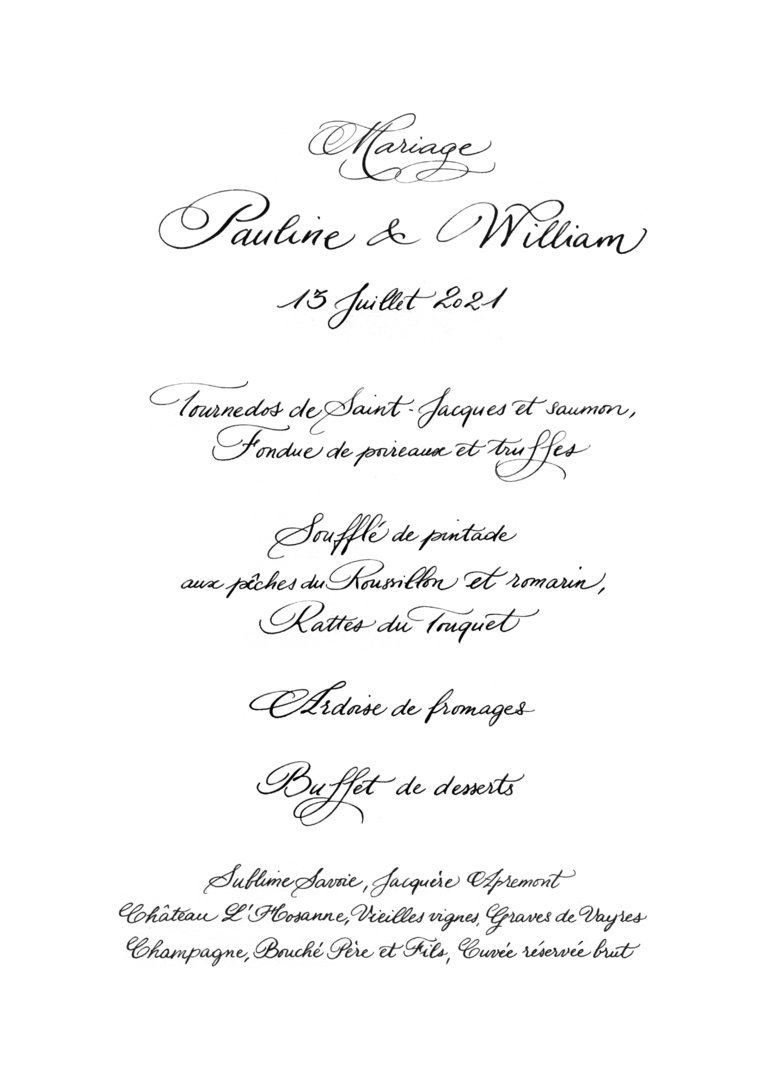 Mariage
Pauline & William
13 Juillet 2021
Tournedos de Saint-Jacques et saumon,
Fondue de poireaux et truffes
Soufflé de pintade
aux pêches du Roussillon et romarin,
Rattes du Touquet
Ardoise de fromages
Buffet de desserts
Sublime Savoie, Jacquère Apremont
Château L'Hosanne, Vieilles vignes, Graves de Vayres
Champagne, Bouché Père et Fils, Cuvée réservée brut